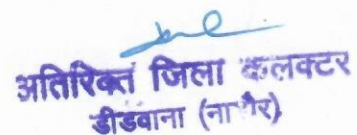 अतिरिक्त जिला कलक्टर
डीडवाना (नागौर)